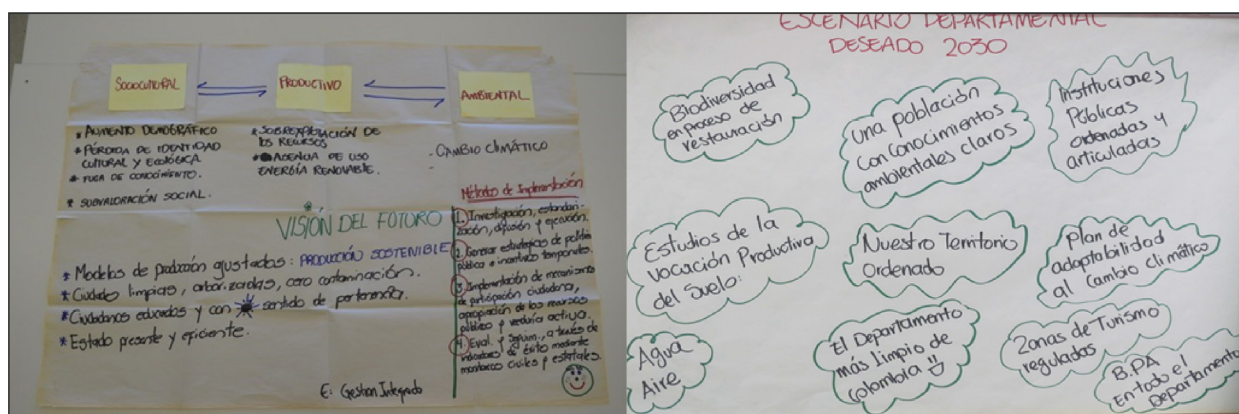 SOCIOCULTURAL
PRODUCTIVO
AMBIENTAL
* AUMENTO DEMOGRÁFICO
* PÉRDIDA DE IDENTIDAD
CULTURAL Y ECOLÓGICA.
* FUGA DE CONOCIMIENTO.
* SUBVALORACIÓN SOCIAL.
* SOBREEXPLOTACIÓN DE
LOS RECURSOS
* AUSENCIA DE USO
ENERGÍA RENOVABLE.
- CAMBIO CLIMÁTICO
VISIÓN DEL FUTURO
* Modelos de producción ajustados: PRODUCCIÓN SOSTENIBLE
* Ciudades limpias, arborizadas, cero contaminación.
* Ciudadanos educados y con sentido de pertenencia.
* Estado presente y eficiente.
E: Gestión Integrado
Métodos de Implementación
1. Investigación, estandari-
zación, difusión y ejecución.
2. Generar estrategias de política
pública e incentivos temporales.
3. Implementación de mecanismos
de participación ciudadana,
apropiación de los recursos
públicos y veeduría activa.
4. Eval. y Seguim., a través de
indicadores de éxito mediante
monitoreos civiles y estatales.
ESCENARIO DEPARTAMENTAL
DESEADO 2030
Biodiversidad
en proceso de
restauración
Una población
con conocimientos
ambientales claros
Instituciones
Públicas
ordenadas y
articuladas
Estudios de la
Vocación Productiva
del Suelo:
Nuestro Territorio
Ordenado
Plan de
adaptabilidad
al Cambio Climático
Agua
Aire
El Departamento
más limpio de
Colombia
Zonas de Turismo
reguladas
B.PA
En todo el
Departamento